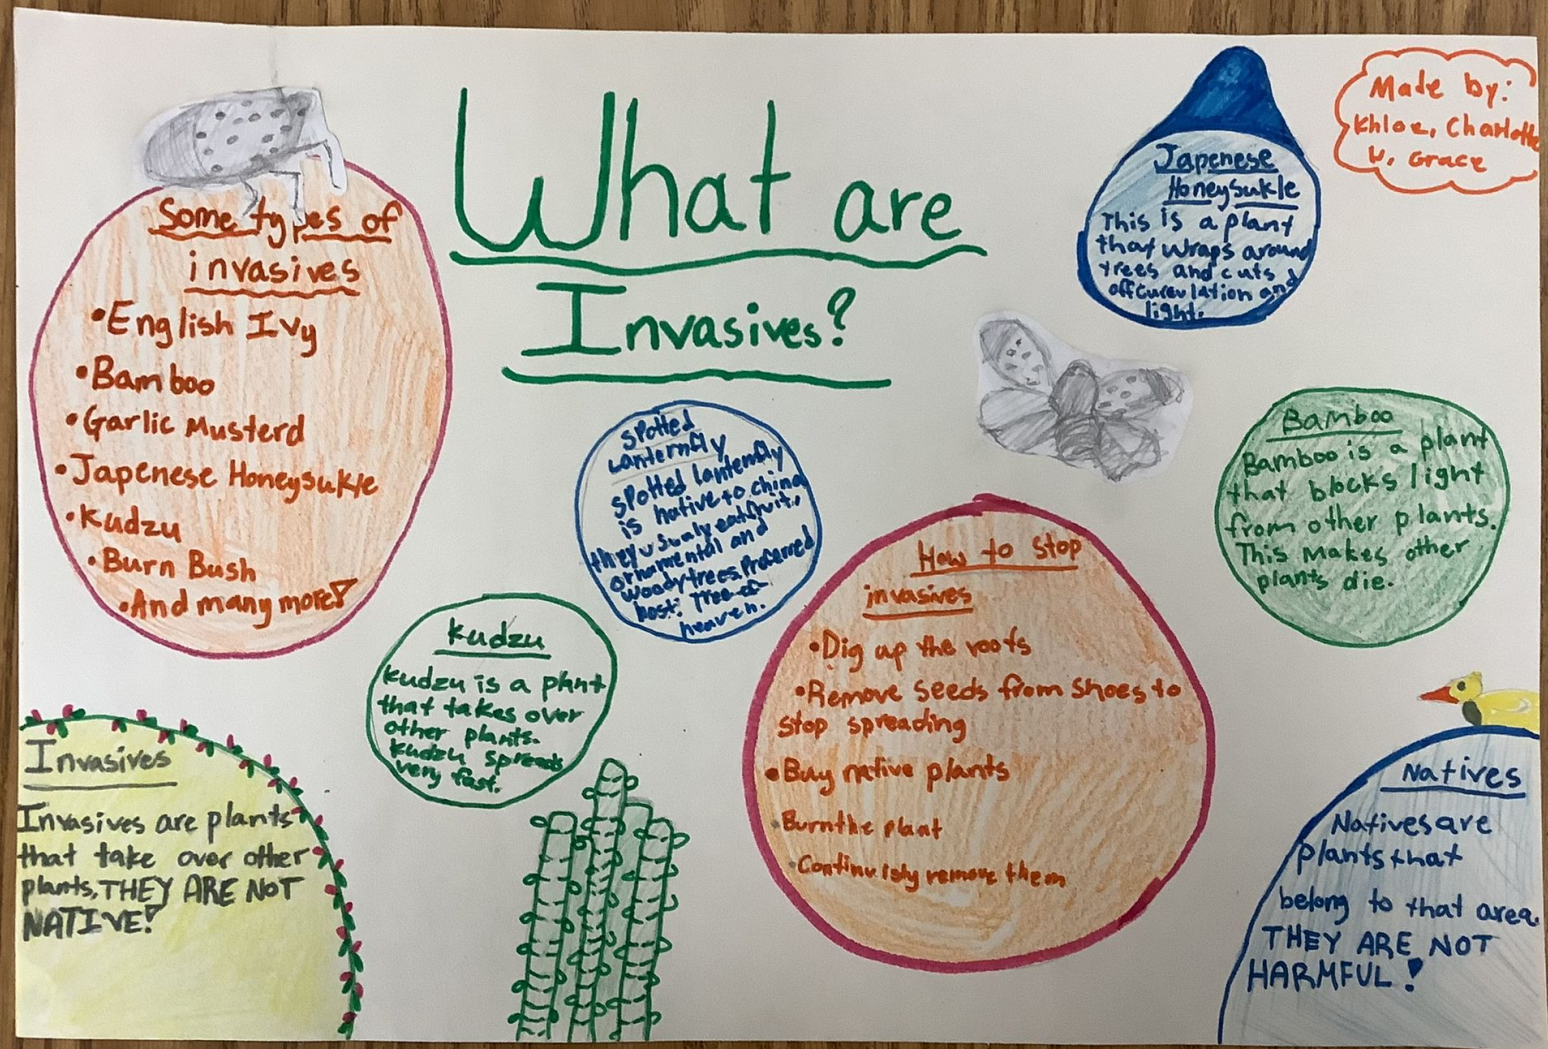 What are
Invasives?
Made by:
Khloe, Charlotte
W, Grace
Some types of
invasives
•English Ivy
•Bamboo
•Garlic Musterd
•Japenese Honeysukle
•Kudzu
•Burn Bush
•And many more!
Japenese
Honeysukle
This is a plant
that wraps around
trees and cuts
off curculation and
light.
Spotted
Lanternfly
spotted lanternfly
is native to china
they usualy eat fruit,
ornamental and
woody trees. Preferred
host: Tree-of-
heaven.
Bamboo
Bamboo is a plant
that blocks light
from other plants.
This makes other
plants die.
Kudzu
Kudzu is a plant
that takes over
other plants.
Kudzu spreads
very fast.
How to stop
invasives
•Dig up the roots
•Remove seeds from shoes to
stop spreading
•Buy native plants
•Burn the plant
•Continuisly remove them
Invasives
Invasives are plants
that take over other
plants, THEY ARE NOT
NATIVE!
Natives
Natives are
plants that
belong to that area.
THEY ARE NOT
HARMFUL!